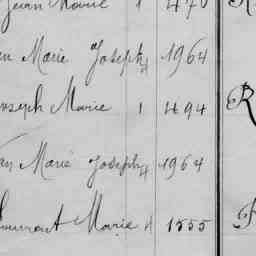 Jean Marie 1 470
en Marie Joseph 4 1964
oseph Marie 1 494 R
an Marie Joseph 4 1964
Marie 4 1555